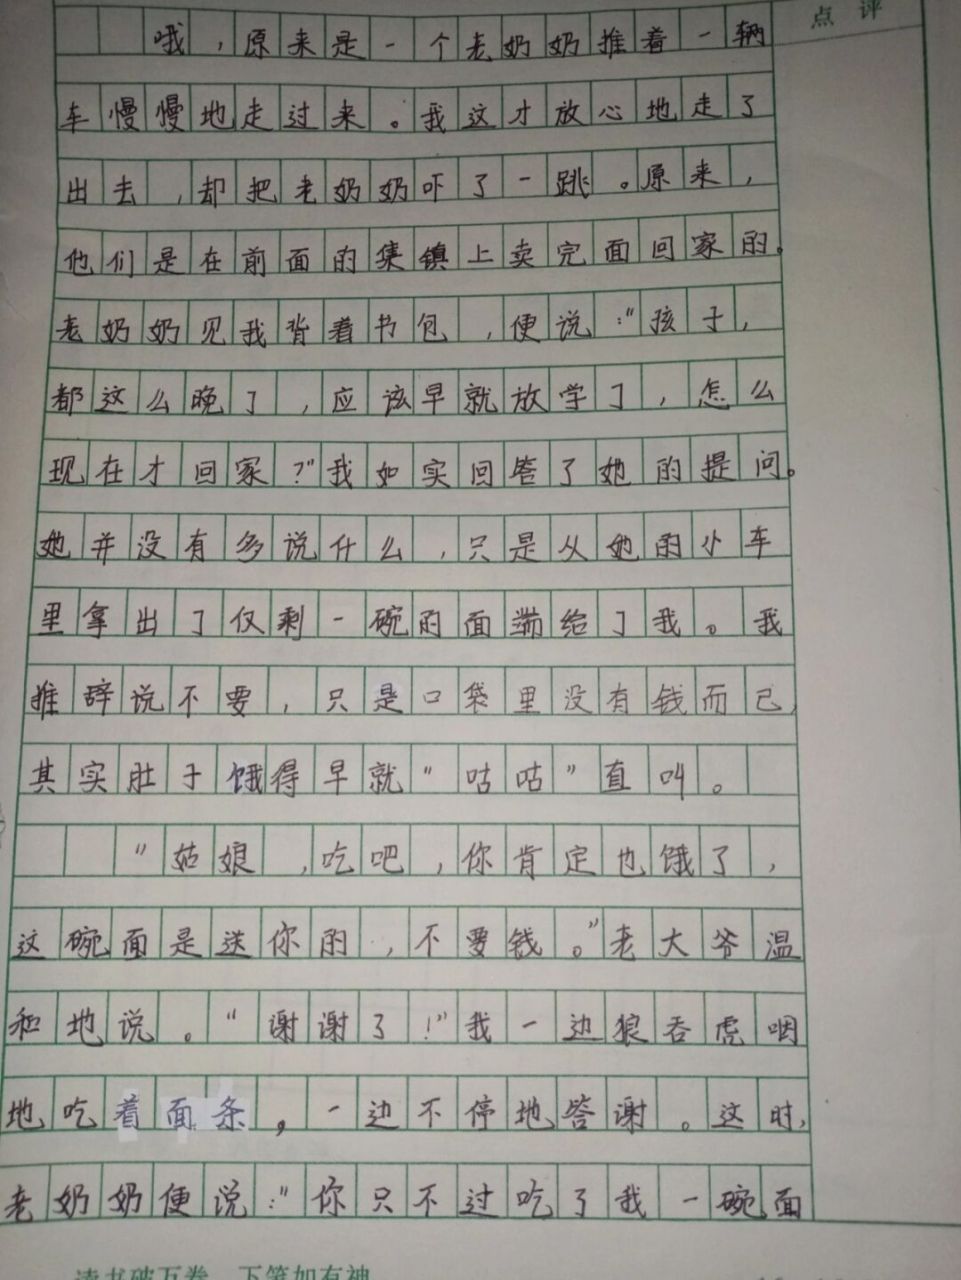 点 评
哦，原来是一个老奶奶推着一辆
车慢慢地走过来。我这才放心地走了
出去，却把老奶奶吓了一跳。原来，
他们是在前面的集镇上卖完面回家的。
老奶奶见我背着书包，便说：“孩子，
都这么晚了，应该早就放学了，怎么
现在才回家？”我如实回答了她的提问。
她并没有多说什么，只是从她的小车
里拿出了仅剩一碗的面端给了我。我
推辞说不要，只是口袋里没有钱而已，
其实肚子饿得早就“咕咕”直叫。
“姑娘，吃吧，你肯定也饿了，
这碗面是送你的，不要钱。”老大爷温
和地说。“谢谢了！”我一边狼吞虎咽
地吃着面条，一边不停地答谢。这时，
老奶奶便说：“你只不过吃了我一碗面
读书破万卷 下笔如有神